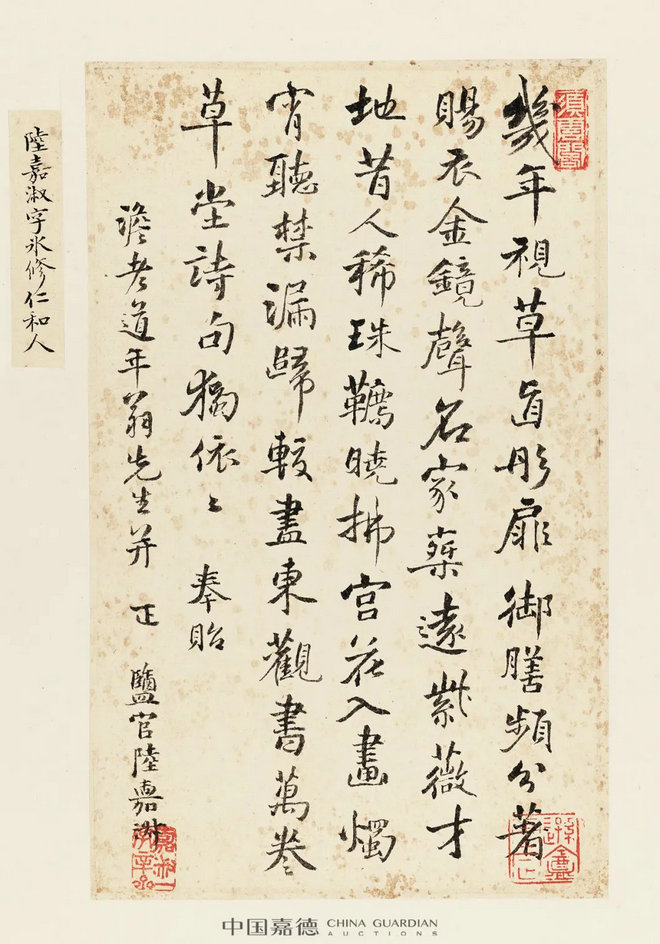 幾年視草直彤扉御膳頻分著
賜衣金鏡聲名家藥遠紫薇才
地昔人稀珠韉曉拂宮花入畫燭
宵聽禁漏歸較盡東觀書萬卷
草堂詩句獨依〻 奉貽
澹老道年翁先生并 正 鹽官陸嘉淑
陸嘉淑字冰修仁和人
中国嘉德 CHINA GUARDIAN
AUCTIONS